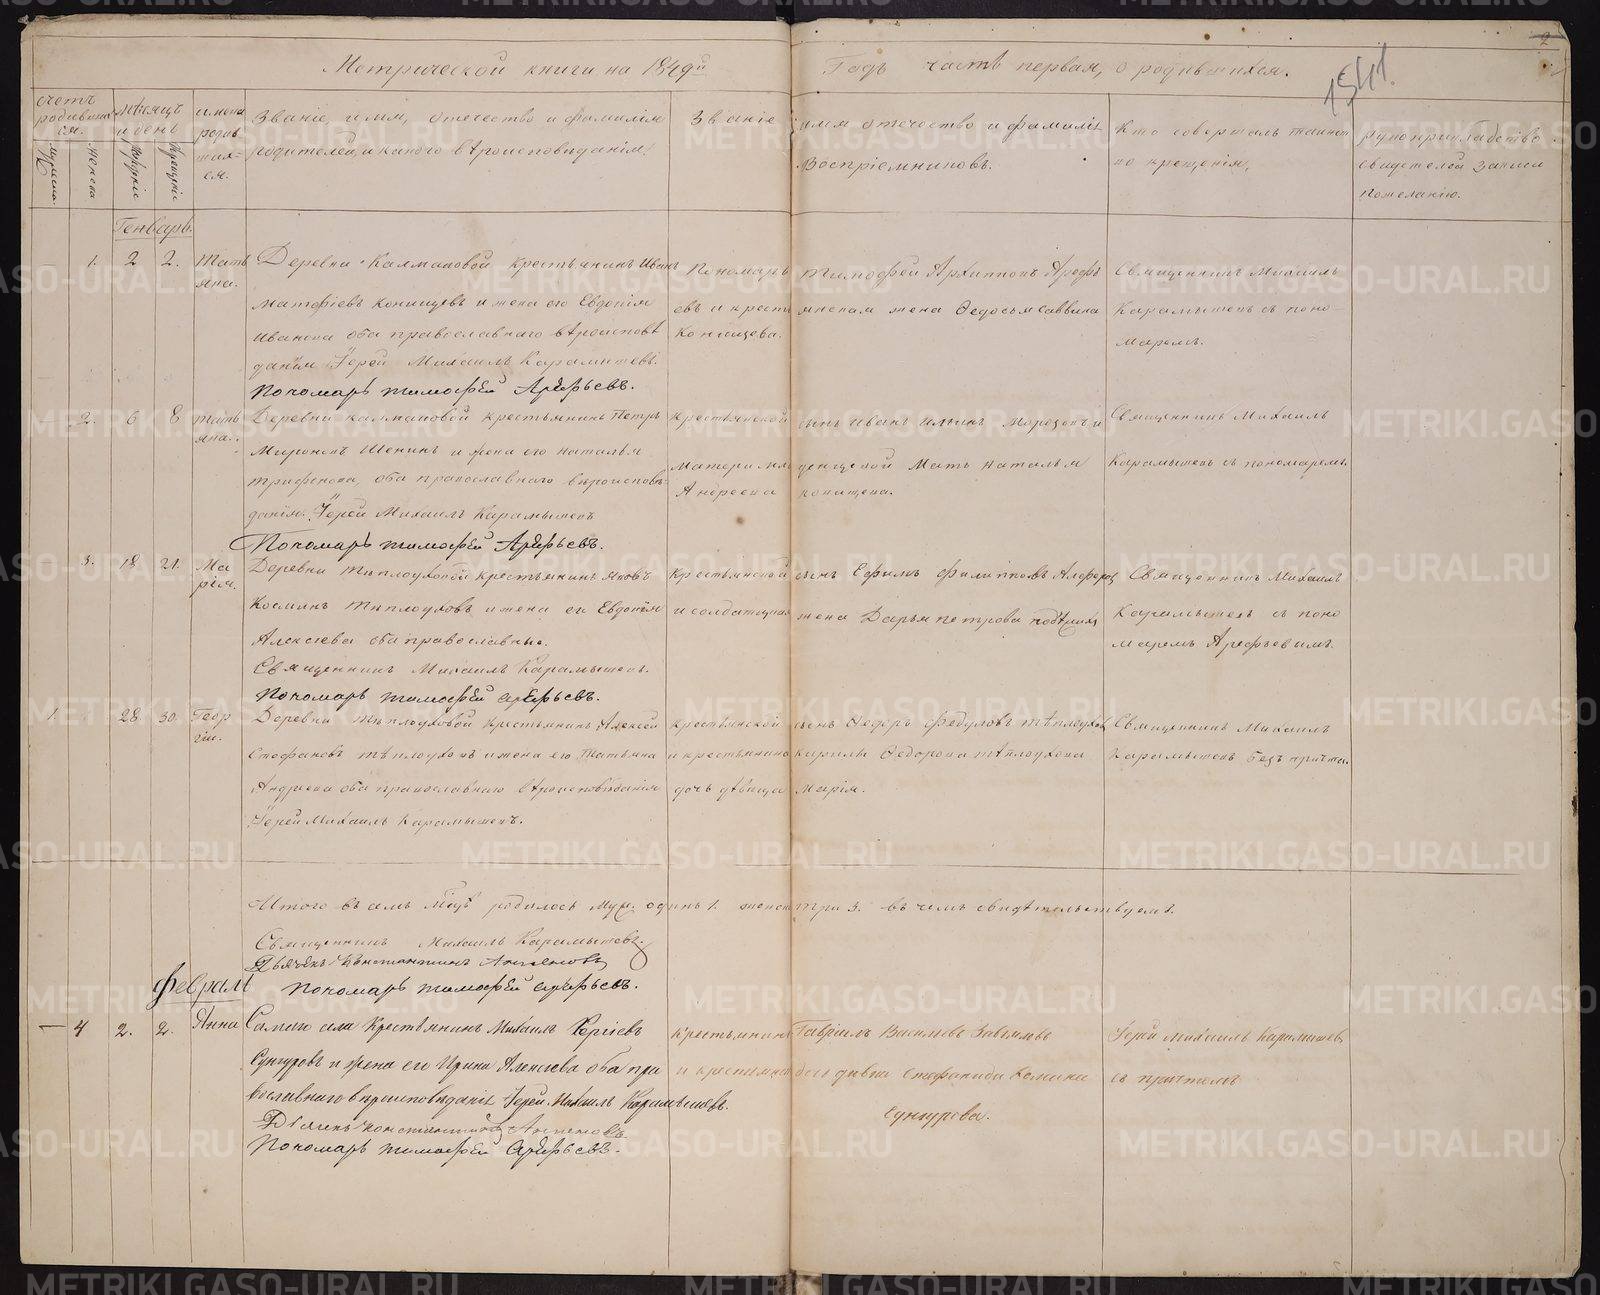 Метрической книги на 1849й Годъ часть первая, о родившихся.
2
1541.
счетъ родившихся.
мужеска.
женска
Мѣсяцъ и день
рожденіе
крещеніе
имена родившихся.
Званіе, имя, отечество и фамилія
родителей, и какого вѣроисповѣданія.
Званіе имя отечество и фамилія
Воспріемниковъ.
Кто совершалъ таинство
по крещенія,
рукоприкладство
свидетелей записи
пожеланію.
Генварь.
1. 2 2. Татьяна.
Деревни Калмаковой крестьянинъ Иванъ
Матфіевъ Конищевъ и жена его Евдокія
Иванова оба православнаго вѣроисповѣ
данія Іерей Михаилъ Карамышевъ.
Пономарь тимофей Арефьевъ.
Пономарь тимофей Архиповъ Арефь
евъ и крестьянская жена Ѳедосья Саввина
Конищева.
Священникъ Михаилъ
Карамышевъ съ поно
маремъ.
2. 6 8 татьяна.
Деревни калмаковой крестьянинъ Петръ
Миронъ Шенинъ и жена его Наталья
трифонова оба православнаго вѣроисповѣ
данія. Іерей Михаилъ Карамышевъ
Пономарь тимофей Арефьевъ.
крестьянской сынъ Иванъ
Мать Наталья
Андреева
Священникъ Михаилъ
Карамышевъ съ пономаремъ.
3. 18 21. Марія.
Деревни типлоуховой крестьянинъ Яковъ
Космин типлоуховъ и жена ег Евдокія
Алексіева оба православные.
Священникъ Михаилъ Карамышевъ.
Пономарь тимофей арефьевъ.
Крестьянской сынъ Ефимъ филипповъ
и солдатская жена Дарья петрова
Священникъ Михаилъ
Карамышевъ съ поно
маремъ Арефьевымъ.
1. 28 30. Георгій.
Деревни типлоуховой крестьянинъ Алексей
Стефановъ тѣплоуховъ и жена его татьяна
Андреева оба православнаго вѣроисповѣданія
Іерей Михаилъ Карамышевъ.
крестьянской сынъ Ѳедоръ федуловъ тѣплоуховъ
и крестьянина кирилы Ѳедорова тѣплоухова
дочь дѣвица Марія.
Священникъ Михаилъ
Карамышевъ безъ причта.
Итого въ семъ мцѣ родилось Муж. одинъ 1. женск три 3. въ чемъ свидѣтельствуемъ.
Священникъ Михаилъ Карамышевъ.
Дьячекъ Константинъ
Пономарь тимофей арефьевъ.
февраль
4 2. 2. Анна
Самаго села Крестьянинъ Михаилъ
Сунгуровъ и жена его Ирина Алексіева оба пра
вославнаго вѣроисповѣданія Іерей Михаилъ Карамышевъ.
Дьячекъ Константинъ
Пономарь тимофей Арефьевъ.
Крестьянинъ Гавріилъ Васильевъ Завьяловъ
и крестьянская девка Стефанида
Сунгурова.
Іерей Михаилъ Карамышевъ
съ причтомъ
METRIKI.GASO-URAL.RU